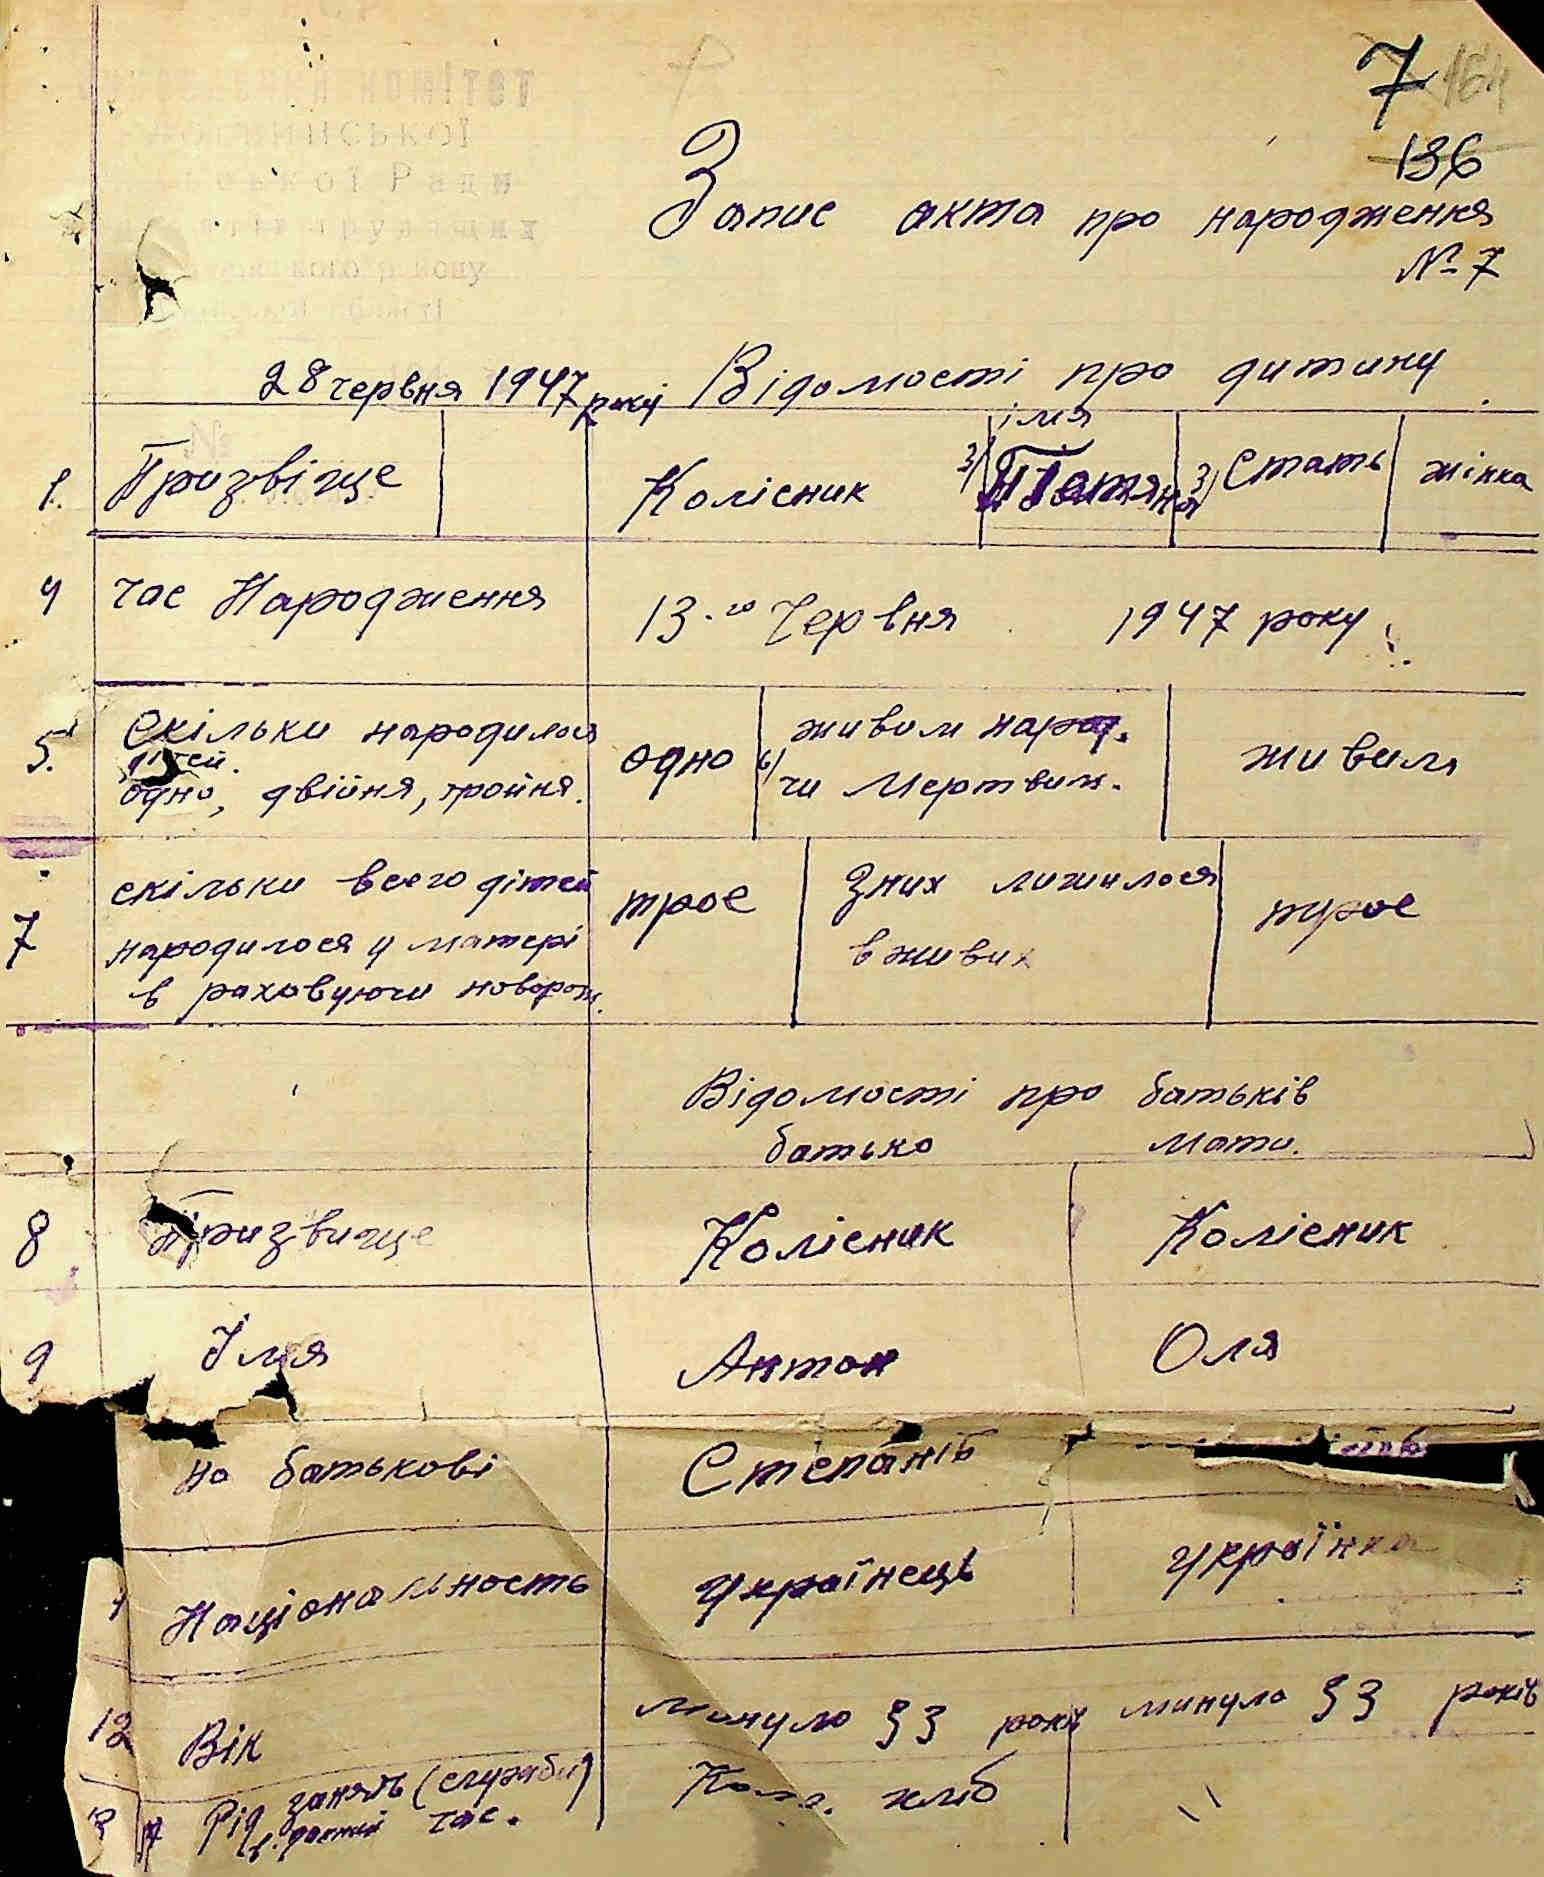 комітет
ської Ради
7 164
136
Запис акта про народження
№ 7
28 червня 1947 року Відомості про дитину
1. Призвіще Колісник 3/ імя Татяна 3/ Стать жінка
4 час Народження 13-го Червня 1947 року
5. Скільки народилося дітей. одно, двійня, тройня. одно 6/ живим народ. чи Мертвим. живим
7 скільки всего дітей народилося у матері в раховуючи новорож. трое З них лишилося в живих трое
Відомости про батьків
батько мати.
8 Призвище Колісник Колісник
9 Імя Антон Оля
по батькові Степанів
Національность українець українка
12 Вік минуло 33 роки минуло 33 років
13 Рід занять (служби) в. даний час. хліб "